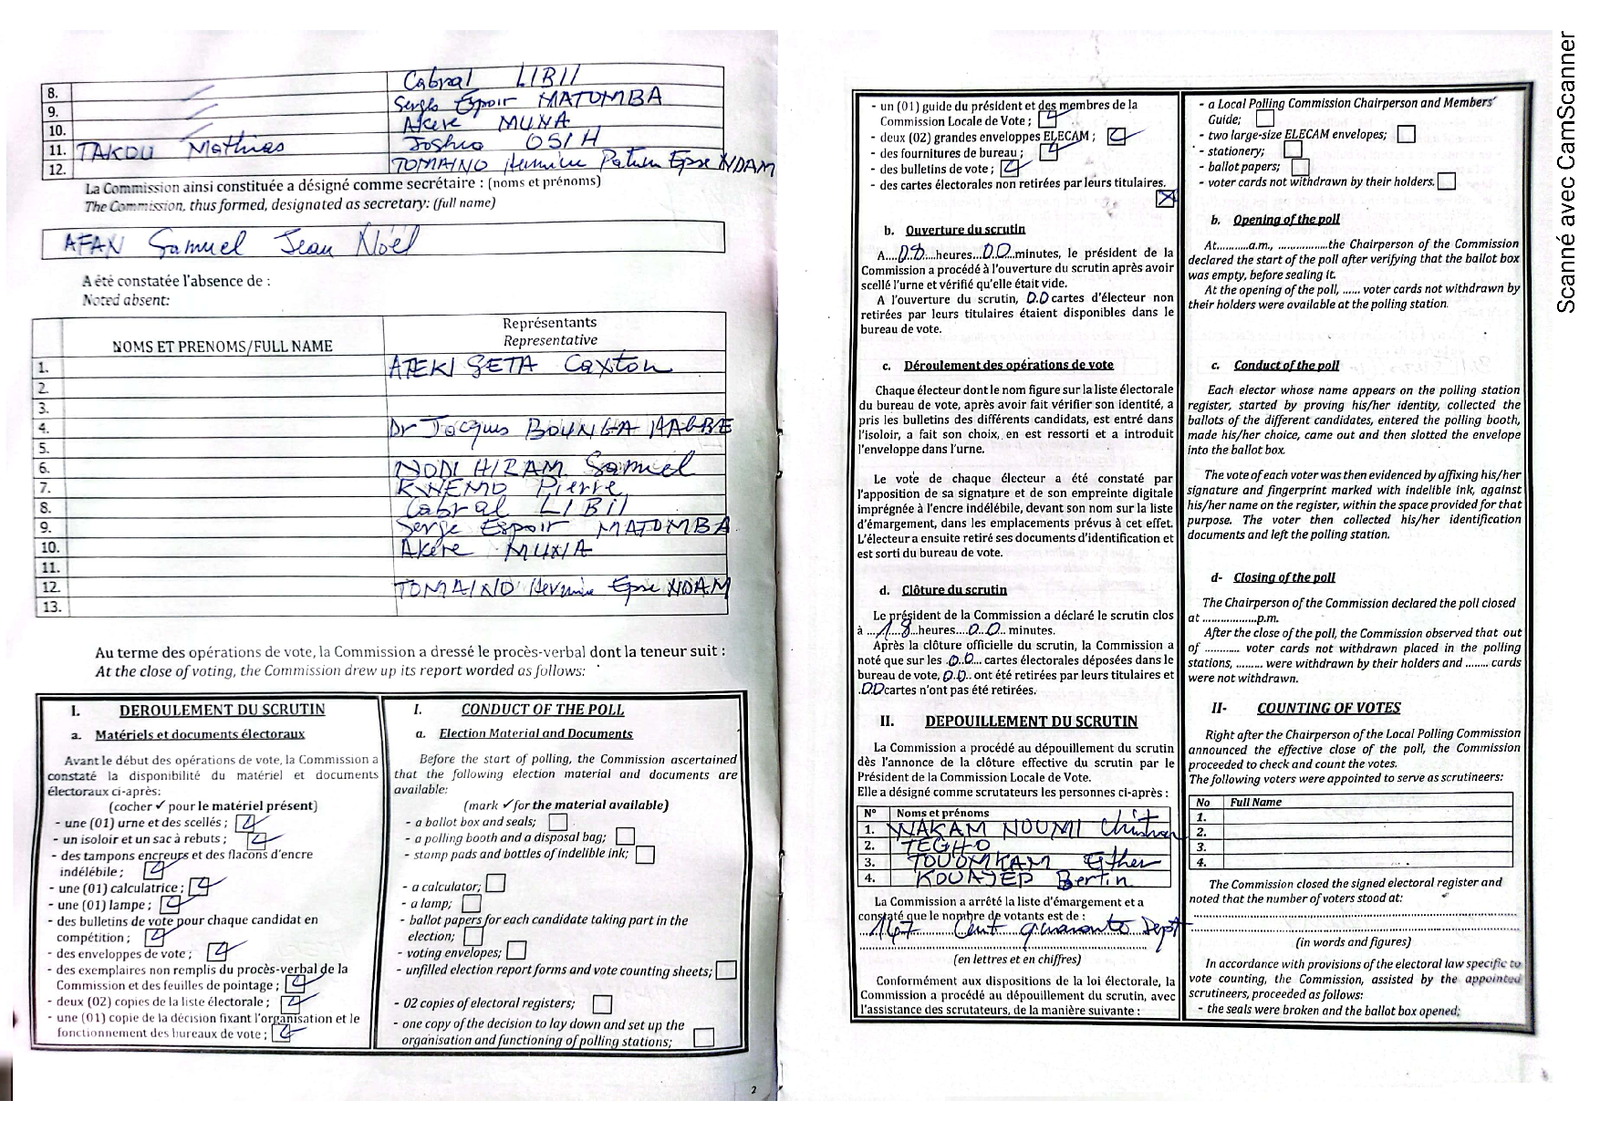 8. Cabral LIBII
9. Serge Espoir MATOMBA
10. Akere MUNA
11. TAKOU Mathias Joshua OSIH
12. TOMAINO Hermine Patricia Epse NDAM
La Commission ainsi constituée a désigné comme secrétaire : (noms et prénoms)
The Commission, thus formed, designated as secretary: (full name)
AFAN Samuel Jean Noël
A été constatée l'absence de :
Noted absent:
NOMS ET PRENOMS/FULL NAME
Représentants
Representative
1. ATEKI SETA Caxton
2.
3.
4. Dr Jacques BOUNGHA HAGBE
5.
6. NDDI HIRAM Samuel
7. KWEMO Pierre
8. Cabral LIBII
9. Serge Espoir MATOMBA
10. Akere MUNA
11.
12. TOMAINO Hermine Epse NDAM
13.
Au terme des opérations de vote, la Commission a dressé le procès-verbal dont la teneur suit :
At the close of voting, the Commission drew up its report worded as follows:
I. DEROULEMENT DU SCRUTIN
a. Matériels et documents électoraux
Avant le début des opérations de vote, la Commission a
constaté la disponibilité du matériel et documents
électoraux ci-après:
(cocher ✓ pour le matériel présent)
- une (01) urne et des scellés ;
- un isoloir et un sac à rebuts ;
- des tampons encreurs et des flacons d'encre
indélébile ;
- une (01) calculatrice ;
- une (01) lampe ;
- des bulletins de vote pour chaque candidat en
compétition ;
- des enveloppes de vote ;
- des exemplaires non remplis du procès-verbal de la
Commission et des feuilles de pointage ;
- deux (02) copies de la liste électorale ;
- une (01) copie de la décision fixant l'organisation et le
fonctionnement des bureaux de vote ;
I. CONDUCT OF THE POLL
a. Election Material and Documents
Before the start of polling, the Commission ascertained
that the following election material and documents are
available:
(mark ✓ for the material available)
- a ballot box and seals;
- a polling booth and a disposal bag;
- stamp pads and bottles of indelible ink;
- a calculator;
- a lamp;
- ballot papers for each candidate taking part in the
election;
- voting envelopes;
- unfilled election report forms and vote counting sheets;
- 02 copies of electoral registers;
- one copy of the decision to lay down and set up the
organisation and functioning of polling stations;
2
- un (01) guide du président et des membres de la
Commission Locale de Vote ;
- deux (02) grandes enveloppes ELECAM ;
- des fournitures de bureau ;
- des bulletins de vote ;
- des cartes électorales non retirées par leurs titulaires.
b. Ouverture du scrutin
A....08..heures...00...minutes, le président de la
Commission a procédé à l'ouverture du scrutin après avoir
scellé l'urne et vérifié qu'elle était vide.
A l'ouverture du scrutin, 00 cartes d'électeur non
retirées par leurs titulaires étaient disponibles dans le
bureau de vote.
c. Déroulement des opérations de vote
Chaque électeur dont le nom figure sur la liste électorale
du bureau de vote, après avoir fait vérifier son identité, a
pris les bulletins des différents candidats, est entré dans
l'isoloir, a fait son choix, en est ressorti et a introduit
l'enveloppe dans l'urne.
Le vote de chaque électeur a été constaté par
l'apposition de sa signature et de son empreinte digitale
imprégnée à l'encre indélébile, devant son nom sur la liste
d'émargement, dans les emplacements prévus à cet effet.
L'électeur a ensuite retiré ses documents d'identification et
est sorti du bureau de vote.
d. Clôture du scrutin
Le président de la Commission a déclaré le scrutin clos
à ...18...heures....00.. minutes.
Après la clôture officielle du scrutin, la Commission a
noté que sur les .00... cartes électorales déposées dans le
bureau de vote, 00.. ont été retirées par leurs titulaires et
.00 cartes n'ont pas été retirées.
II. DEPOUILLEMENT DU SCRUTIN
La Commission a procédé au dépouillement du scrutin
dès l'annonce de la clôture effective du scrutin par le
Président de la Commission Locale de Vote.
Elle a désigné comme scrutateurs les personnes ci-après :
N° Noms et prénoms
1. WAKAM NOUMI Christian
2. TEGHO
3. TOUOMKAM Esther
4. KOUAJEP Bertin
La Commission a arrêté la liste d'émargement et a
constaté que le nombre de votants est de :
147 Cent quarante Sept
(en lettres et en chiffres)
Conformément aux dispositions de la loi électorale, la
Commission a procédé au dépouillement du scrutin, avec
l'assistance des scrutateurs, de la manière suivante :
- a Local Polling Commission Chairperson and Members'
Guide;
- two large-size ELECAM envelopes;
- stationery;
- ballot papers;
- voter cards not withdrawn by their holders.
b. Opening of the poll
At...........a.m., ..................the Chairperson of the Commission
declared the start of the poll after verifying that the ballot box
was empty, before sealing it.
At the opening of the poll, ...... voter cards not withdrawn by
their holders were available at the polling station.
c. Conduct of the poll
Each elector whose name appears on the polling station
register, started by proving his/her identity, collected the
ballots of the different candidates, entered the polling booth,
made his/her choice, came out and then slotted the envelope
into the ballot box.
The vote of each voter was then evidenced by affixing his/her
signature and fingerprint marked with indelible ink, against
his/her name on the register, within the space provided for that
purpose. The voter then collected his/her identification
documents and left the polling station.
d- Closing of the poll
The Chairperson of the Commission declared the poll closed
at ..................p.m.
After the close of the poll, the Commission observed that out
of ........... voter cards not withdrawn placed in the polling
stations, ......... were withdrawn by their holders and ........ cards
were not withdrawn.
II- COUNTING OF VOTES
Right after the Chairperson of the Local Polling Commission
announced the effective close of the poll, the Commission
proceeded to check and count the votes.
The following voters were appointed to serve as scrutineers:
No Full Name
1.
2.
3.
4.
The Commission closed the signed electoral register and
noted that the number of voters stood at:
(in words and figures)
In accordance with provisions of the electoral law specific to
vote counting, the Commission, assisted by the appointed
scrutineers, proceeded as follows:
- the seals were broken and the ballot box opened;
Scanné avec CamScanner